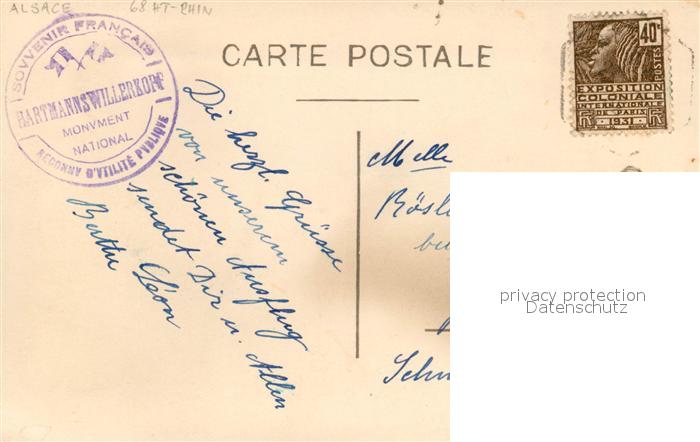 ALSACE 68 HT-RHIN
SOUVENIR FRANÇAIS
HARTMANNSWILLERKOPF
MONVMENT
NATIONAL
RECONNV D'VTILITÉ PVBLIQVE
CARTE POSTALE
40c
POSTES
EXPOSITION
COLONIALE
INTERNATIONALE
DE PARIS
1931
Die herzl. Grüsse
von unserem
schönen Ausflug
sendet Dir u. Allen
Léon
Melle
privacy protection
Datenschutz